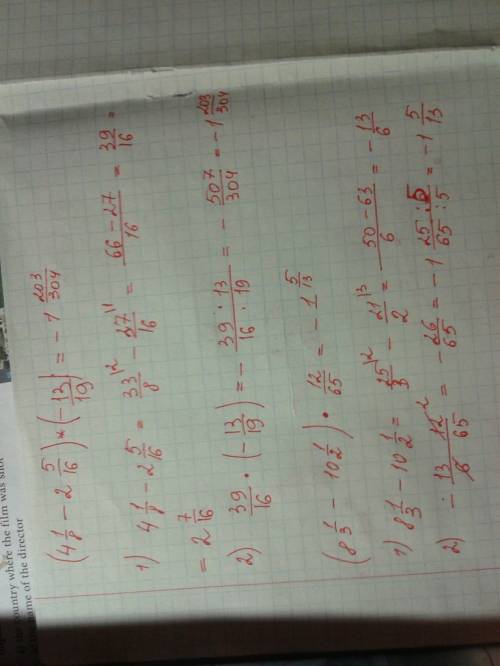 a) the country where the film was shot
the name of the director
(4 1/8 - 2 5/16) * (- 13/19) = - 1 203/304
1) 4 1/8 - 2 5/16 = 33/8 |2 - 27/16 |1 = 66 - 27/16 = 39/16 =
= 2 7/16
2) 39/16 · (- 13/19) = - 39 · 13/16 · 19 = - 507/304 = - 1 203/304
(8 1/3 - 10 1/2) · 12/65 = - 1 5/13
1) 8 1/3 - 10 1/2 = 25/3 |2 - 21/2 |3 = 50 - 63/6 = - 13/6
2) - 13/6 · 12 2/65 = - 26/65 = - 1 25 : 5/65 : 5 = - 1 5/13